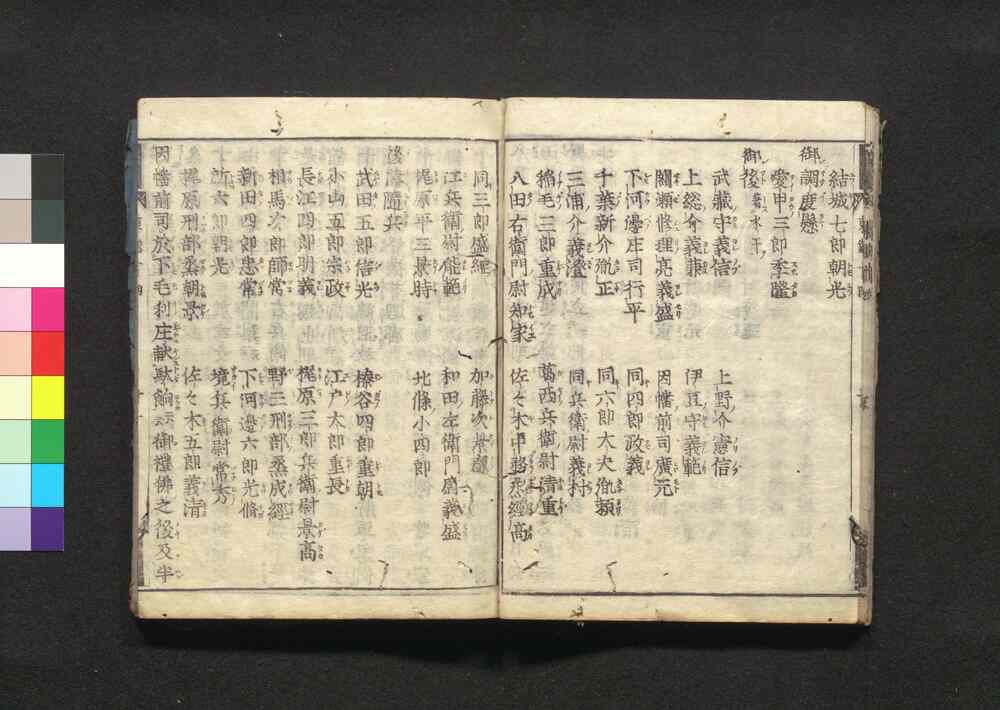 結城七郎朝光
御調度懸
愛甲三郎季隆
御後 水干
武藏守義信 上野介憲信
上総介義兼 伊豆守義範
關瀬修理亮義盛 因幡前司廣元
下河邊庄司行平 同四郎政義
千葉新介胤正 同六郎大夫胤頼
三浦介義澄 同兵衛尉義村
稲毛三郎重成 葛西兵衛尉清重
八田右衛門尉知家 佐々木中務丞經高
同三郎盛經 加藤次景廉
江兵衛尉能範 和田左衛門尉義盛
梶原平三景時 北條小四郎
後陣隨兵
武田五郎信光 榛谷四郎重朝
小山五郎宗政 江戸太郎重長
長江四郎明義 梶原三郎兵衛尉景高
相馬次郎師常 野三刑部丞成經
新田四郎忠常 下河邊六郎光脩
所六郎朝光 境兵衛尉常秀
梶原刑部丞朝景 佐々木五郎義清
因幡前司於下毛利庄献駄餉云云御禮佛之後及半